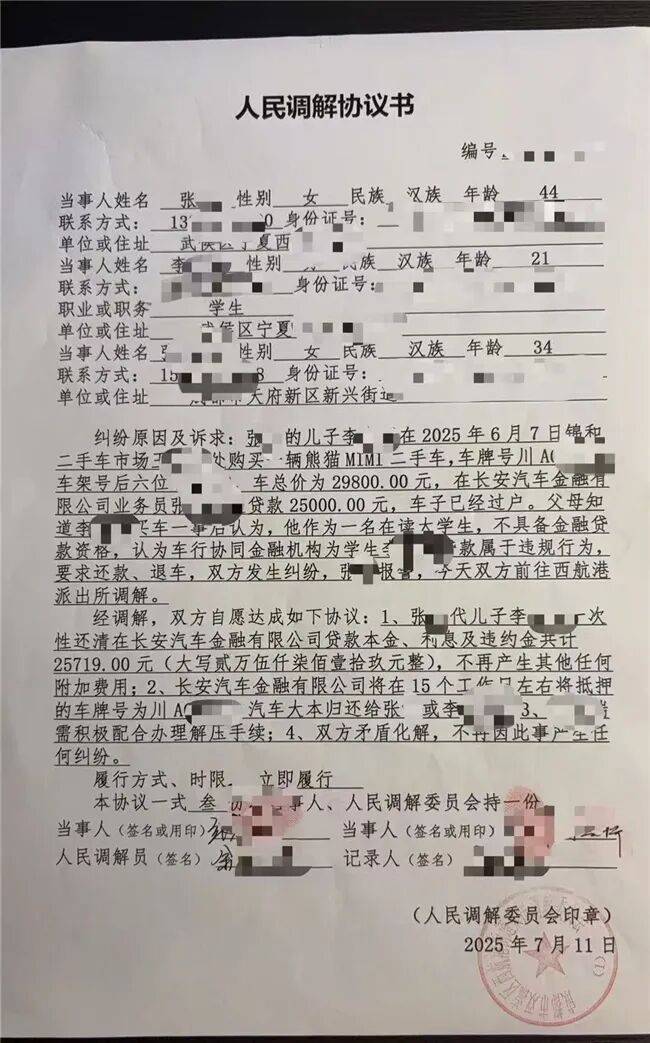 人民调解协议书
编号
当事人姓名 张 性别 女 民族 汉族 年龄 44
联系方式: 13 0 身份证号:
单位或住址 武侯区宁夏西
当事人姓名 李 性别 民族 汉族 年龄 21
联系方式: 身份证号:
职业或职务 学生
单位或住址 武侯区宁夏
当事人姓名 张 性别 女 民族 汉族 年龄 34
联系方式: 15 8 身份证号:
单位或住址 天府新区新兴街道
纠纷原因及诉求: 张 的儿子李 在 2025 年 6 月 7 日锦和
二手车市场 处购买一辆熊猫 MIMI 二手车,车牌号川 A
车架号后六位 、车总价为 29800.00 元, 在长安汽车金融有
限公司业务员张 贷款 25000.00 元, 车子已经过户。父母知
道李 买车一事后认为, 他作为一名在读大学生, 不具备金融贷
款资格, 认为车行协同金融机构为学生李 贷款属于违规行为,
要求还款、退车, 双方发生纠纷, 张 报警, 今天双方前往西航港
派出所调解。
经调解, 双方自愿达成如下协议: 1、张 代儿子李 一次
性还清在长安汽车金融有限公司贷款本金、利息及违约金共计
25719.00 元 (大写贰万伍仟柒佰壹拾玖元整), 不再产生其他任何
附加费用; 2、长安汽车金融有限公司将在 15 个工作日左右将抵押
的车牌号为川 A 汽车大本归还给张 或李 3、
需积极配合办理解压手续; 4、双方矛盾化解, 不再因此事产生任
何纠纷。
履行方式、时限 立即履行
本协议一式 叁 份 当事人、人民调解委员会持一份
当事人 (签名或用印) 当事人 (签名或用印)
人民调解员 (签名) 记录人 (签名)
(人民调解委员会印章)
2025 年 7 月 11 日